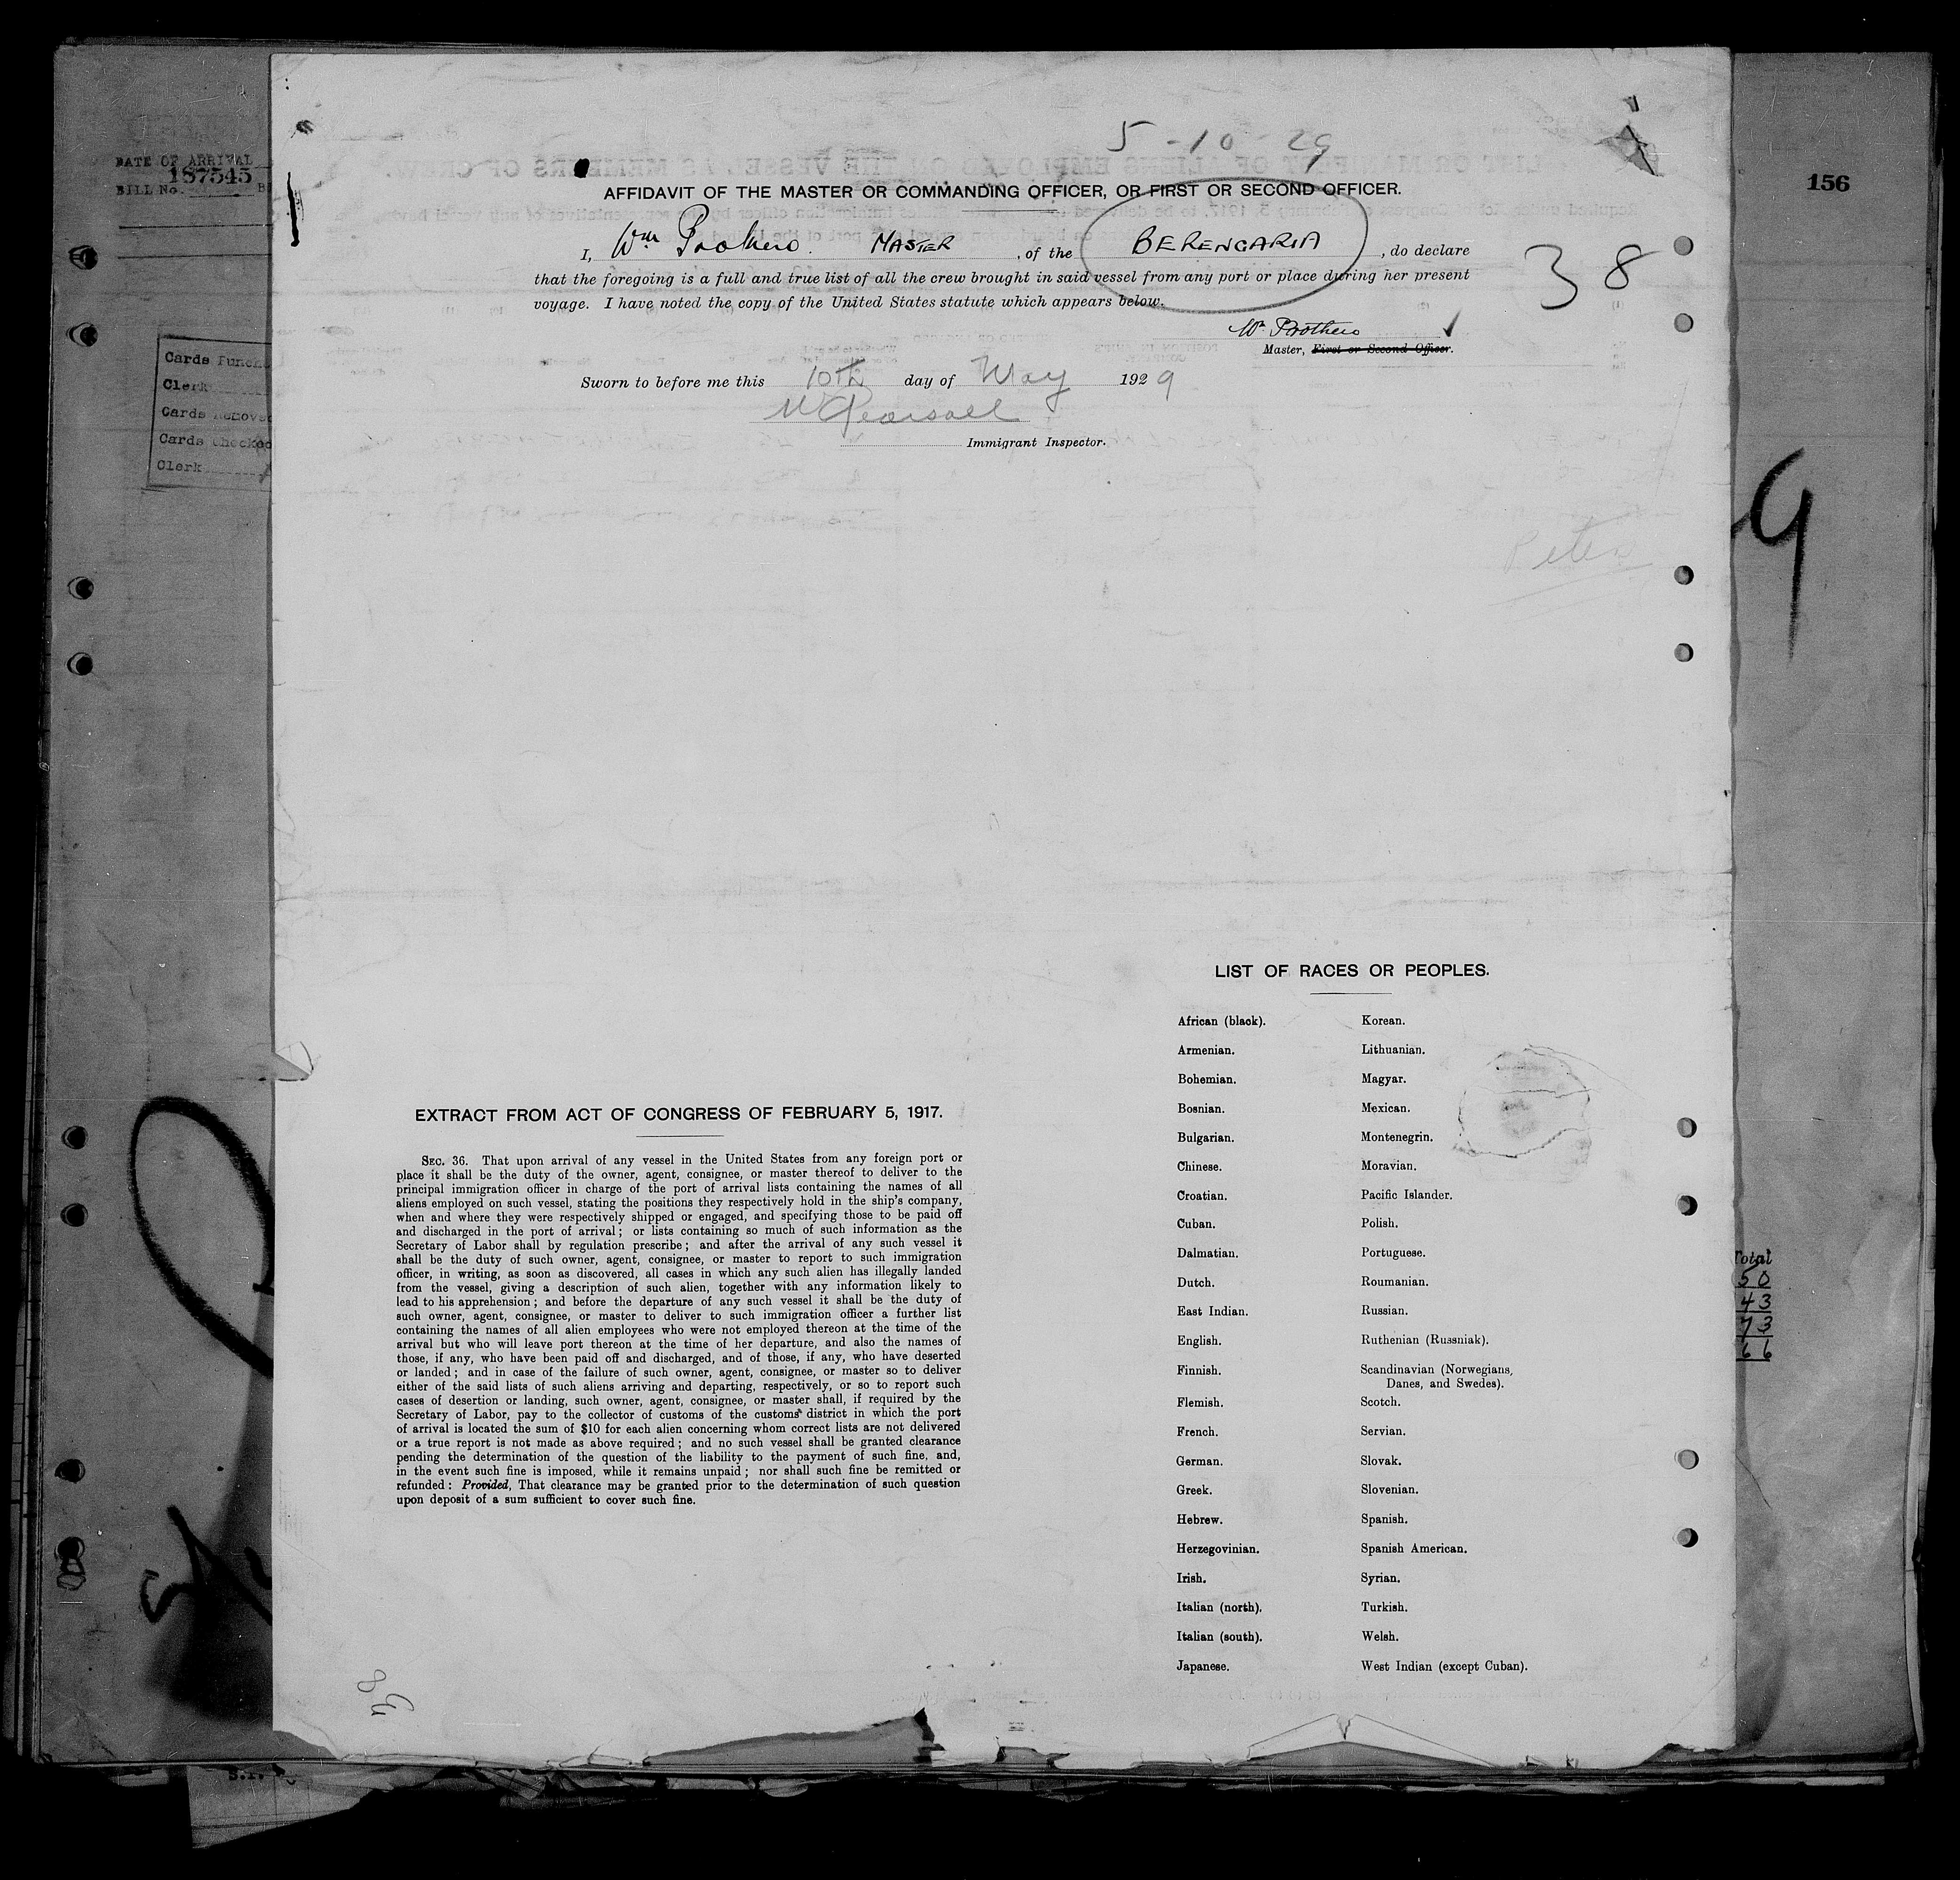 5-10-29
DATE OF ARRIVAL
187545
BILL No.
156
AFFIDAVIT OF THE MASTER OR COMMANDING OFFICER, OR FIRST OR SECOND OFFICER.
I, Wm Prothero. MASTER, of the BERENGARIA, do declare
that the foregoing is a full and true list of all the crew brought in said vessel from any port or place during her present
voyage. I have noted the copy of the United States statute which appears below.
38
Wm Prothero
Master, First or Second Officer.
Sworn to before me this 10th day of May 1929
W Pearsall
Immigrant Inspector.
Cards Punch
Clerk
Cards Removed
Cards Checked
Clerk
9
Peter
LIST OF RACES OR PEOPLES.
African (black). Korean.
Armenian. Lithuanian.
Bohemian. Magyar.
Bosnian. Mexican.
Bulgarian. Montenegrin.
Chinese. Moravian.
Croatian. Pacific Islander.
Cuban. Polish.
Dalmatian. Portuguese.
Dutch. Roumanian.
East Indian. Russian.
English. Ruthenian (Russniak).
Finnish. Scandinavian (Norwegians,
Danes, and Swedes).
Flemish. Scotch.
French. Servian.
German. Slovak.
Greek. Slovenian.
Hebrew. Spanish.
Herzegovinian. Spanish American.
Irish. Syrian.
Italian (north). Turkish.
Italian (south). Welsh.
Japanese. West Indian (except Cuban).
EXTRACT FROM ACT OF CONGRESS OF FEBRUARY 5, 1917.
SEC. 36. That upon arrival of any vessel in the United States from any foreign port or
place it shall be the duty of the owner, agent, consignee, or master thereof to deliver to the
principal immigration officer in charge of the port of arrival lists containing the names of all
aliens employed on such vessel, stating the positions they respectively hold in the ship's company,
when and where they were respectively shipped or engaged, and specifying those to be paid off
and discharged in the port of arrival; or lists containing so much of such information as the
Secretary of Labor shall by regulation prescribe; and after the arrival of any such vessel it
shall be the duty of such owner, agent, consignee, or master to report to such immigration
officer, in writing, as soon as discovered, all cases in which any such alien has illegally landed
from the vessel, giving a description of such alien, together with any information likely to
lead to his apprehension; and before the departure of any such vessel it shall be the duty of
such owner, agent, consignee, or master to deliver to such immigration officer a further list
containing the names of all alien employees who were not employed thereon at the time of the
arrival but who will leave port thereon at the time of her departure, and also the names of
those, if any, who have been paid off and discharged, and of those, if any, who have deserted
or landed; and in case of the failure of such owner, agent, consignee, or master so to deliver
either of the said lists of such aliens arriving and departing, respectively, or so to report such
cases of desertion or landing, such owner, agent, consignee, or master shall, if required by the
Secretary of Labor, pay to the collector of customs of the customs' district in which the port
of arrival is located the sum of $10 for each alien concerning whom correct lists are not delivered
or a true report is not made as above required; and no such vessel shall be granted clearance
pending the determination of the question of the liability to the payment of such fine, and,
in the event such fine is imposed, while it remains unpaid; nor shall such fine be remitted or
refunded: Provided, That clearance may be granted prior to the determination of such question
upon deposit of a sum sufficient to cover such fine.
Total
50
43
73
66